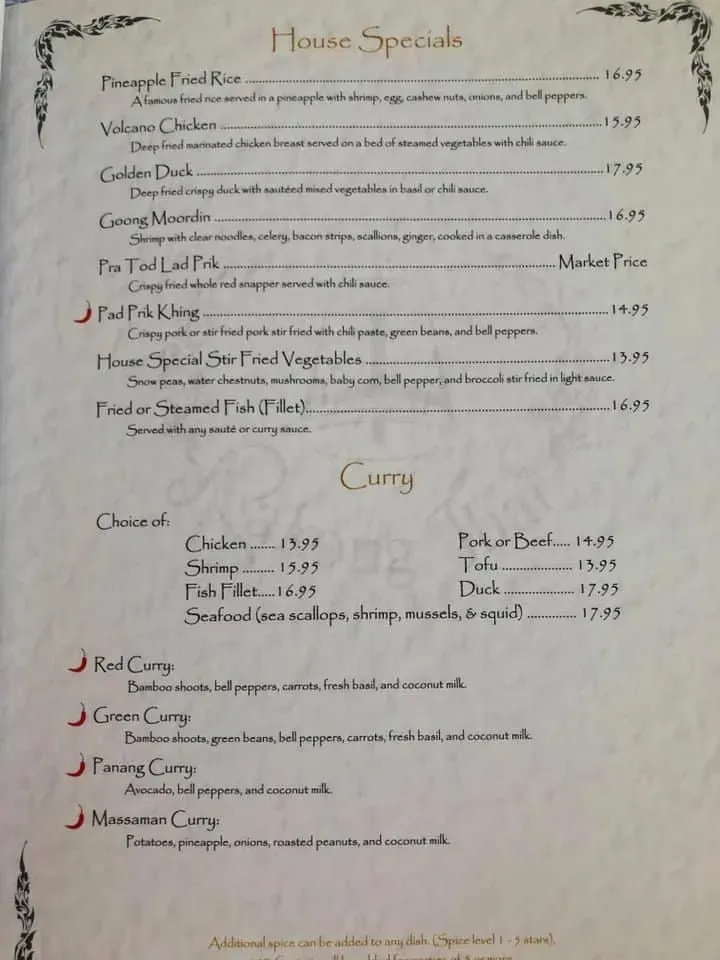 House Specials
Pineapple Fried Rice ........ 16.95
A famous fried rice served in a pineapple with shrimp, egg, cashew nuts, onions, and bell peppers.
Volcano Chicken ........ 15.95
Deep fried marinated chicken breast served on a bed of steamed vegetables with chili sauce.
Golden Duck ........ 17.95
Deep fried crispy duck with sautéed mixed vegetables in basil or chili sauce.
Goong Moordin ........ 16.95
Shrimp with clear noodles, celery, bacon strips, scallions, ginger, cooked in a casserole dish.
Pra Tod Lad Prik ........ Market Price
Crispy fried whole red snapper served with chili sauce.
Pad Prik Khing ........ 14.95
Crispy pork or stir fried pork stir fried with chili paste, green beans, and bell peppers.
House Special Stir Fried Vegetables ........ 13.95
Snow peas, water chestnuts, mushrooms, baby corn, bell pepper, and broccoli stir fried in light sauce.
Fried or Steamed Fish (Fillet)........ 16.95
Served with any sauté or curry sauce.
Curry
Choice of:
Chicken ....... 13.95 Pork or Beef..... 14.95
Shrimp ......... 15.95 Tofu .................... 13.95
Fish Fillet.....16.95 Duck .................... 17.95
Seafood (sea scallops, shrimp, mussels, & squid) .............. 17.95
Red Curry:
Bamboo shoots, bell peppers, carrots, fresh basil, and coconut milk.
Green Curry:
Bamboo shoots, green beans, bell peppers, carrots, fresh basil, and coconut milk.
Panang Curry:
Avocado, bell peppers, and coconut milk.
Massaman Curry:
Potatoes, pineapple, onions, roasted peanuts, and coconut milk.
Additional spice can be added to any dish. (Spice level 1 - 5 stars).